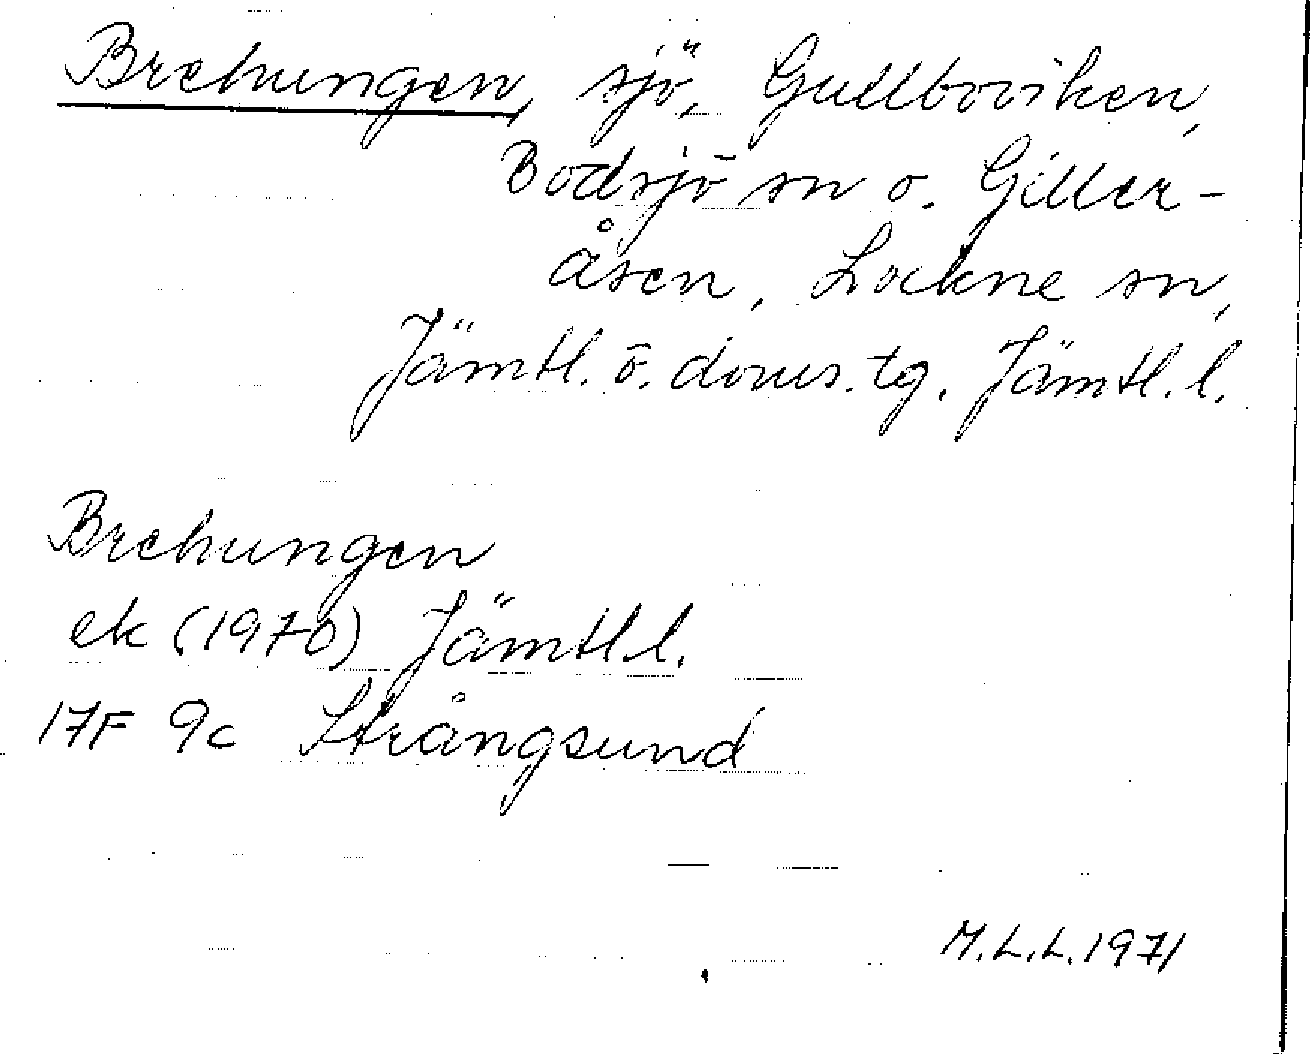 Brehungen, sjö, Gullboviken,
Bodsjö sn o. Giller-
åsen, Lockne sn,
Jämtl. ö. doms. tg. Jämtl. l.
Brehungen
ek (1970) Jämtl.l.
17F 9c Strångsund
M.L.L. 1971